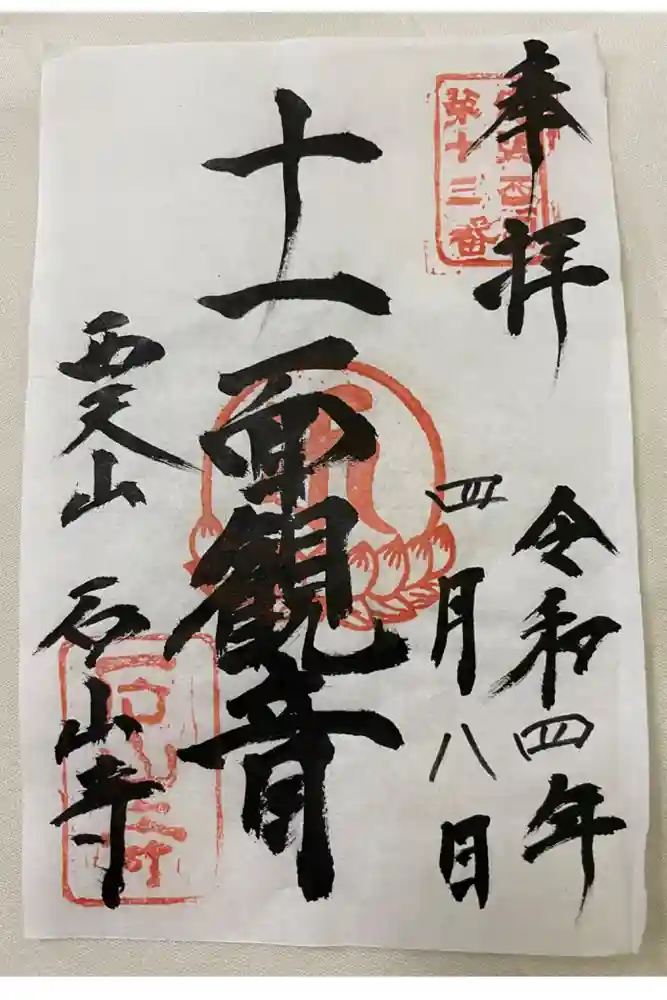 奉拝
第十三番
令和四年
四月八日
十一面観音
西天山 石山寺